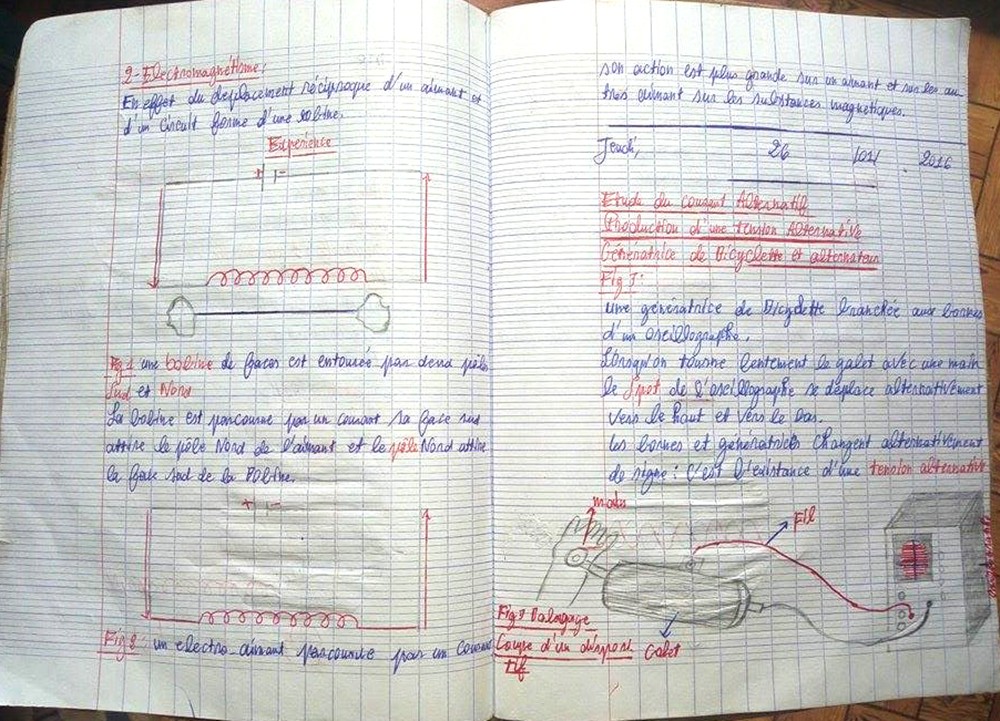 2-Electromagnétisme:
En effet du deplacement réciproque d'un aimant et
d'un circuit forme d'une bobine.
Experience
+ -
Fig 1 une bobine de faces est entourée par deux pôles
Sud et Nord
La bobine est parcourue par un courant sa face sud
attire le pôle Nord de l'aimant et le pôle Nord attire
la face sud de la Bobine.
+ -
Fig 2: un electro-aimant parcourue par un courant
son action est plus grande sur un aimant et sur les au
tres aimant sur les substances magnetiques.
Jeudi, 26 2016
Etude du courant Alternatif
Production d'une tension Alternative
Génératrice de Bicyclette et alternateur
Fig 7:
une génératrice de Bicyclette branchée aux bornes
d'un oscillographe.
Lorsqu'on tourne lentement le galet avec une main
le Spot de l'oscillographe se déplace alternativement
vers le haut et vers le bas.
les bornes et génératrices changent alternativement
de signe: C'est l'existance d'une tension alternative
main
Fil
Fig 7 Balayage
Coupe d'un disposi
tif
Galet